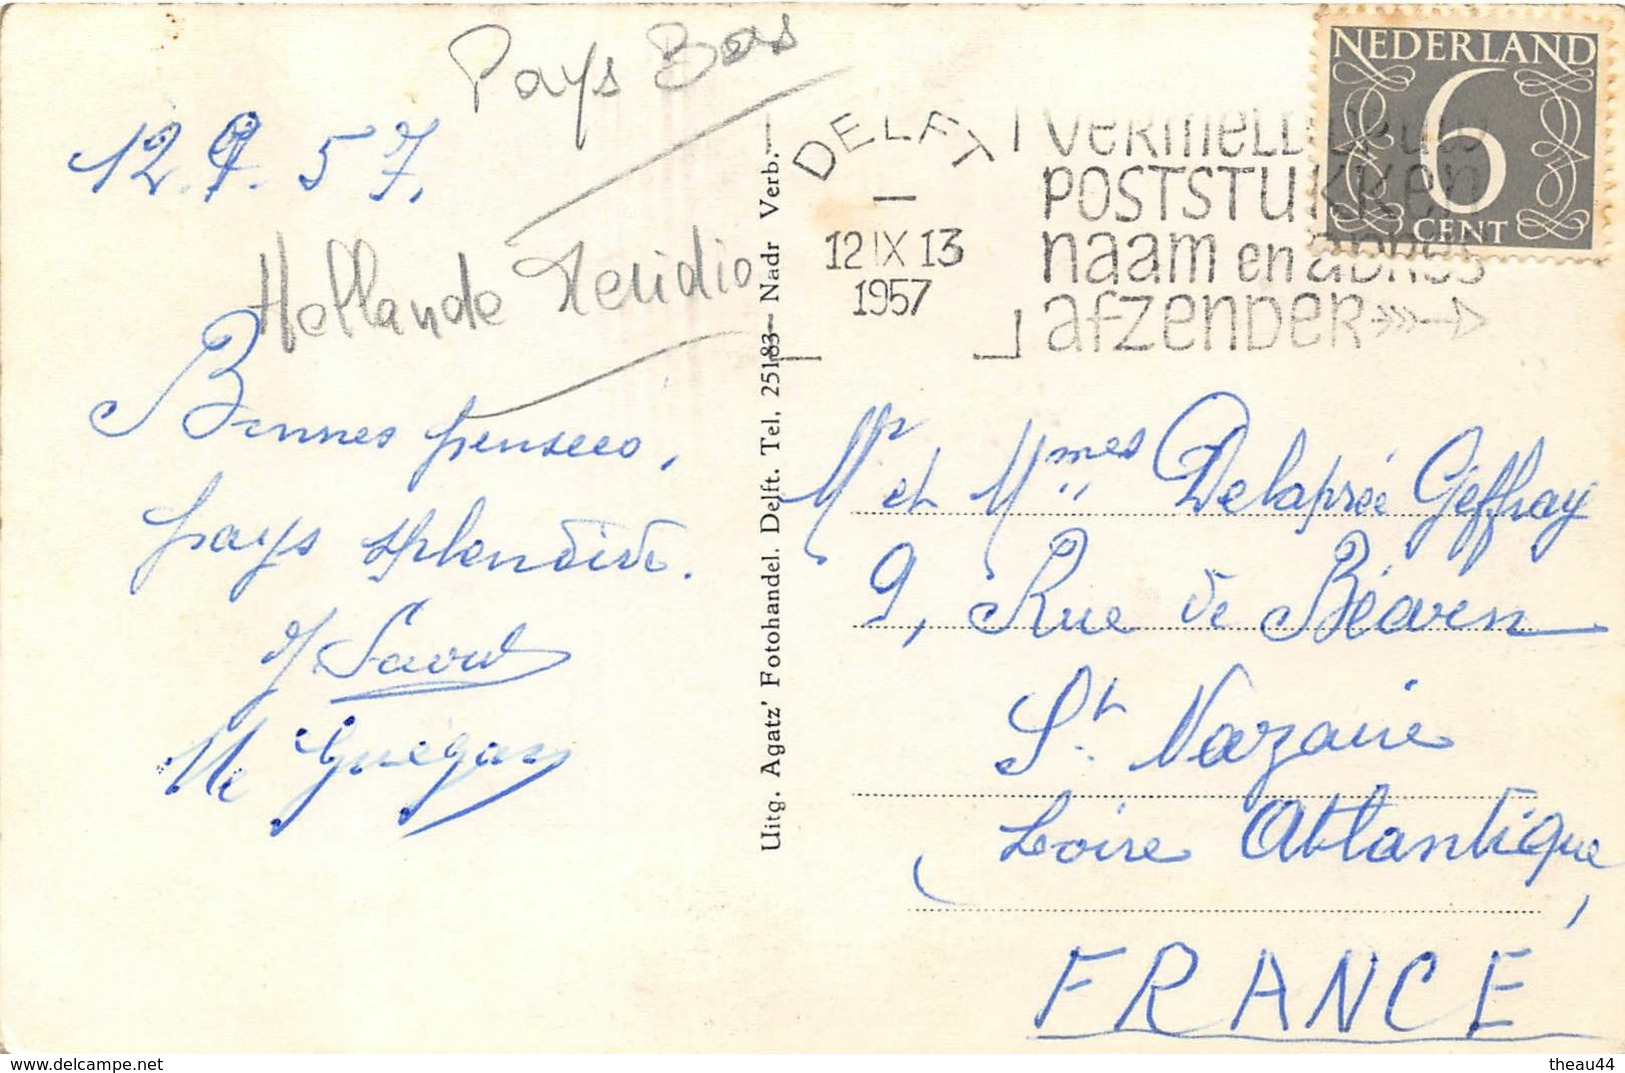 Pays Bas
12.9.57.
Hollande Meridio
Bonnes pensées,
pays splendide.
Me Guégan
Uitg. Agatz' Fotohandel. Delft. Tel. 25183 — Nadr Verb.
DELFT
12 IX 13
1957
VERMELD OP UW
POSTSTUKKEN
naam en adres
afzender
NEDERLAND
6
CENT
Mr et Mmes Delaprée Geffray
9, Rue de Béarn
St. Nazaire
Loire Atlantique,
FRANCE
delcampe.net
theau44